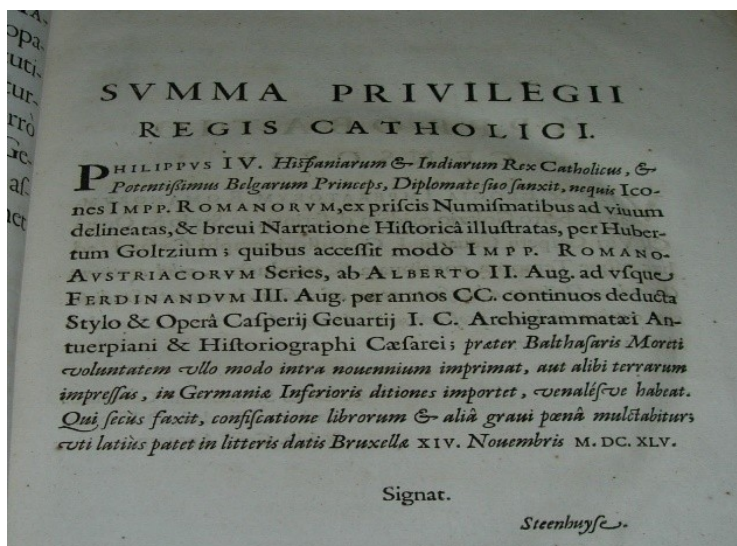 SVMMA PRIVILEGII
REGIS CATHOLICI.
PHILIPPVS IV. Hiſpaniarum & Indiarum Rex Catholicus, &
Potentiſsimus Belgarum Princeps, Diplomate ſuo ſanxit, nequis Ico-
nes IMPP. ROMANORVM, ex priſcis Numiſmatibus ad viuum
delineatas, & breui Narratione Hiſtoricà illuſtratas, per Huber-
tum Goltzium; quibus acceſſit modò IMPP. ROMANO-
AVSTRIACORVM Series, ab ALBERTO II. Aug. ad vſque
FERDINANDVM III. Aug. per annos CC. continuos deducta
Stylo & Operâ Caſperij Geuartij I. C. Archigrammatæi An-
tuerpiani & Hiſtoriographi Cæſarei; præter Balthaſaris Moreti
voluntatem vllo modo intra nouennium imprimat, aut alibi terrarum
impreſſas, in Germaniæ Inferioris ditiones importet, venaléſve habeat.
Qui ſecùs faxit, confiſcatione librorum & aliâ graui pœnâ mulctabitur;
vti latiùs patet in litteris datis Bruxellæ XIV. Nouembris M. DC. XLV.
Signat.
Steenhuyſe.